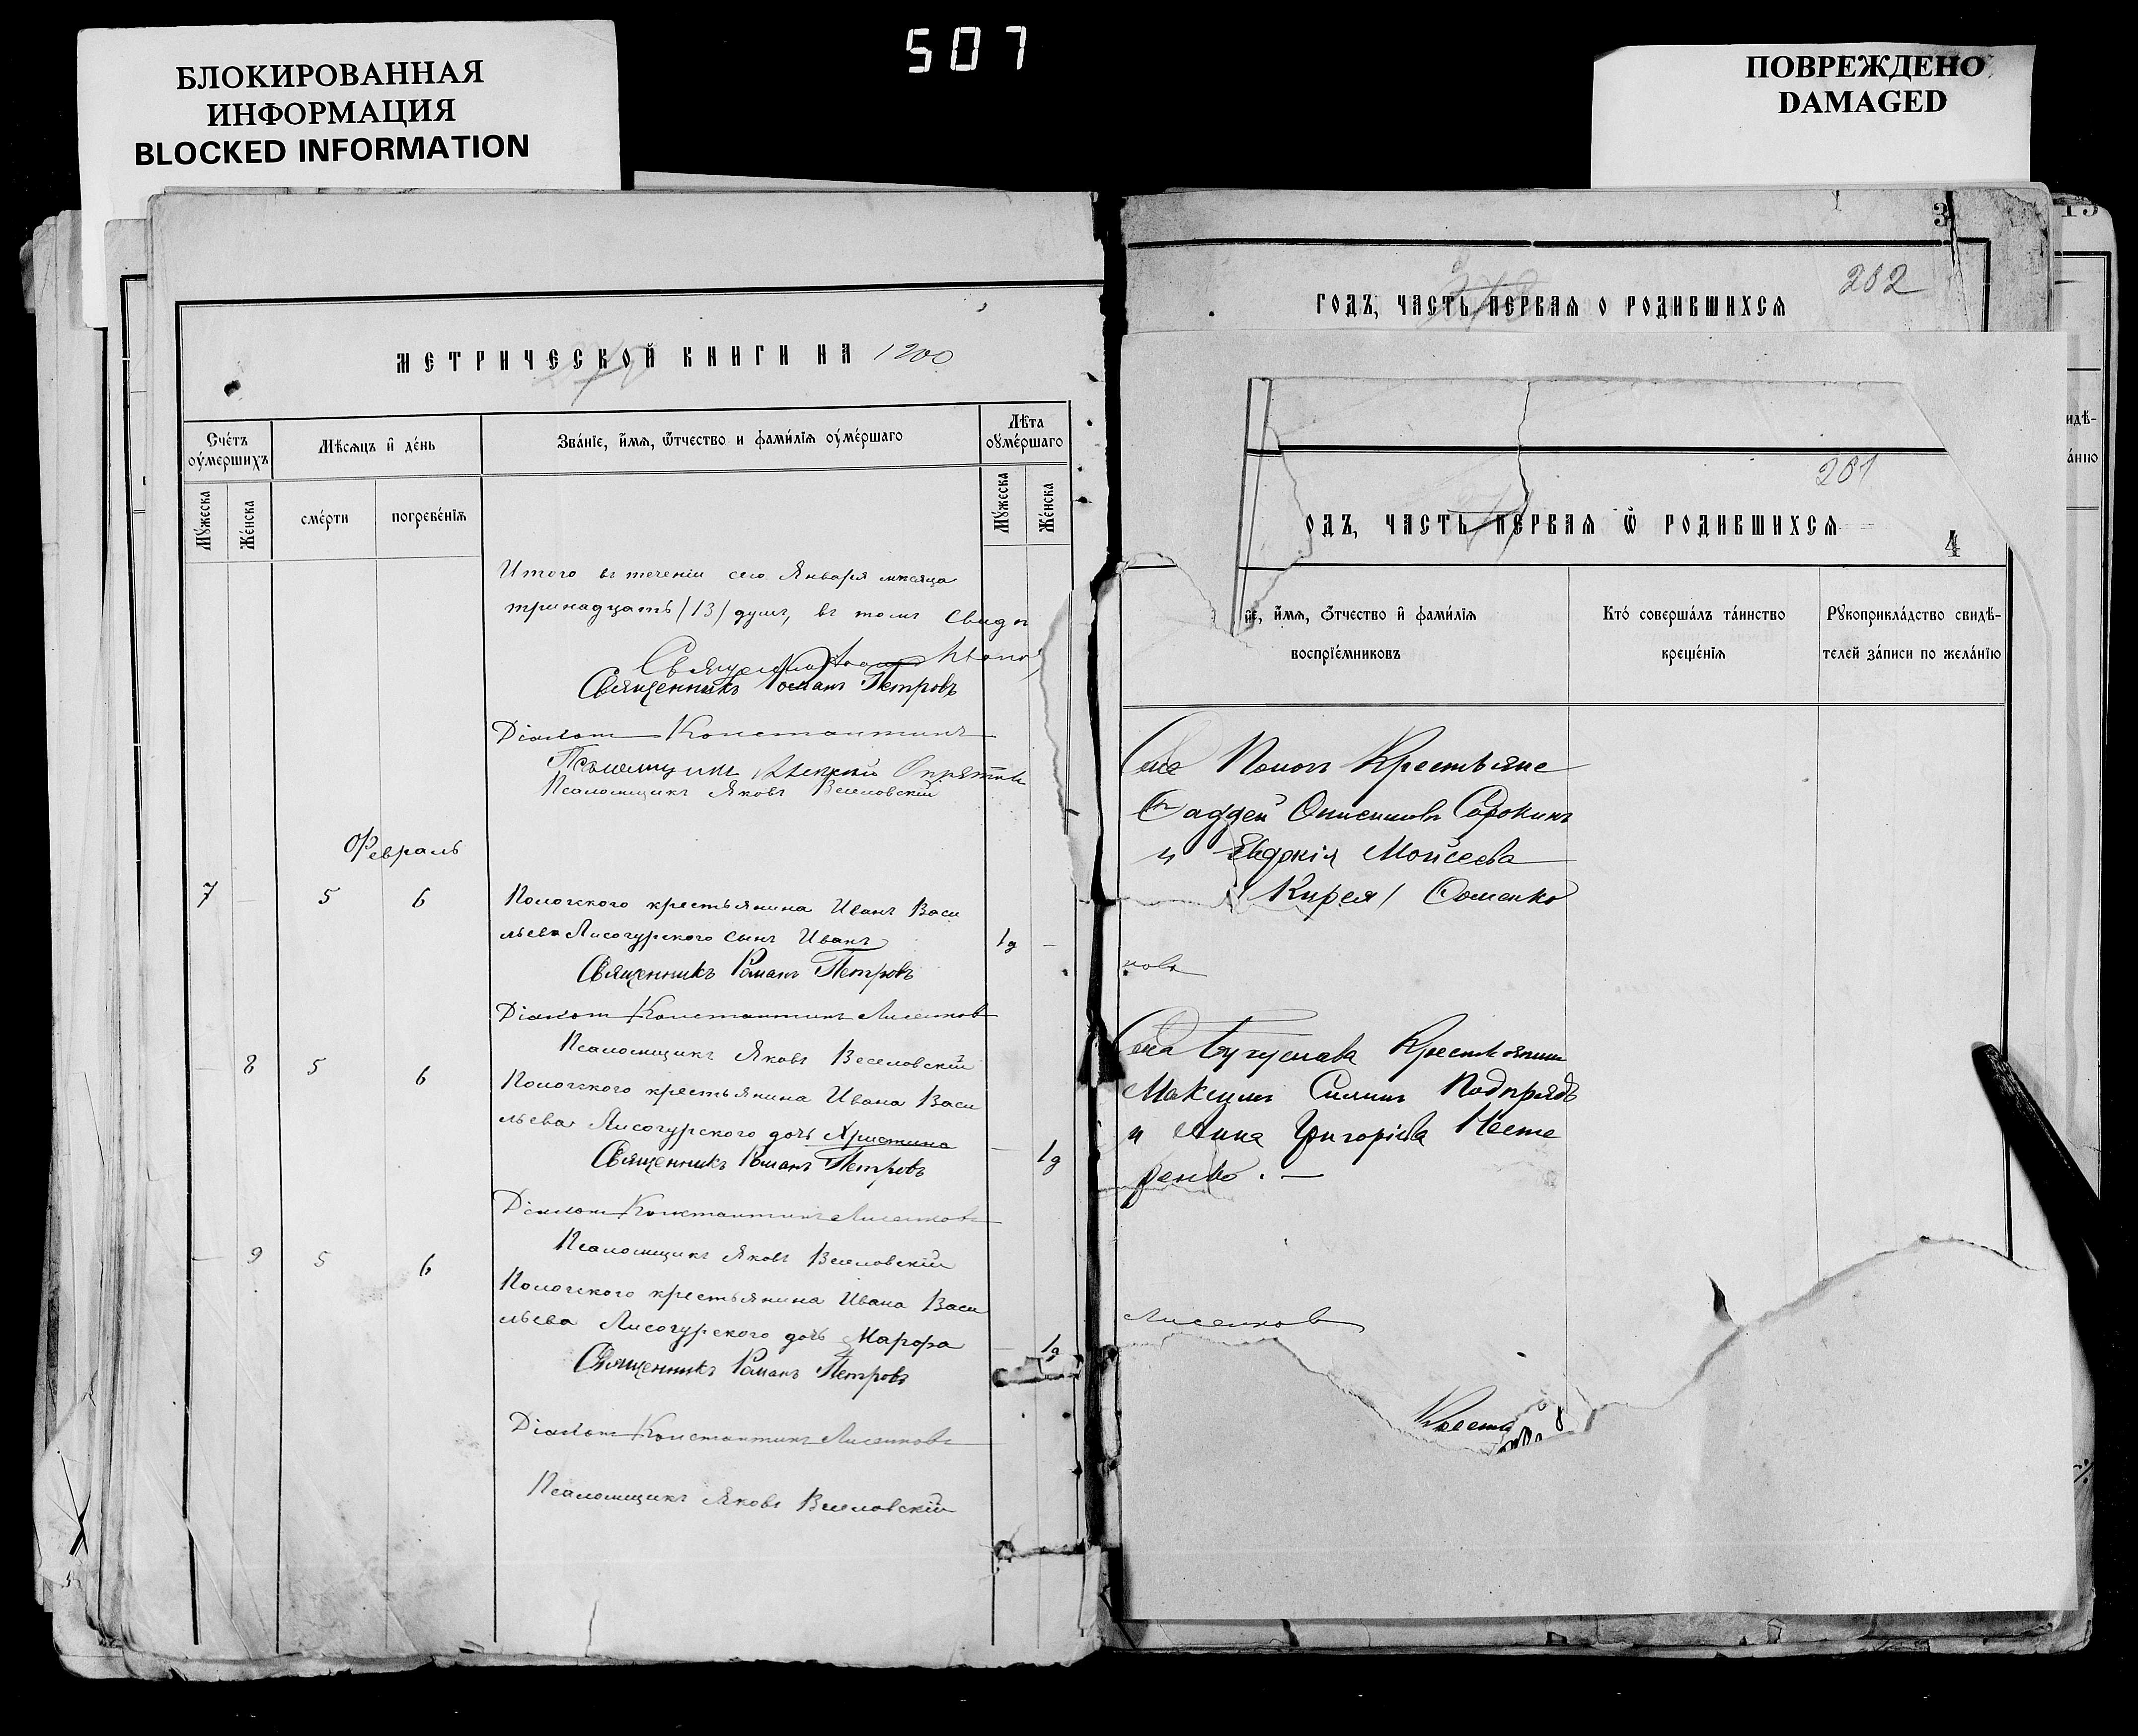 507
БЛОКИРОВАННАЯ
ИНФОРМАЦИЯ
BLOCKED INFORMATION
ПОВРЕЖДЕНО
DAMAGED
МЕТРИЧЕСКОЙ КНИГИ НА 1900
Счетъ оумершихъ
Мѣсяцъ и день
Званіе, имя, ѿтчество и фамилія оумершаго
Лѣта оумершаго
Мужеска
Женска
смерти
погребенія
Мужеска
Женска
Итого въ теченіи сего Января мѣсяца
тринадцать /13/ душъ, въ томъ свид
Священникъ Романъ Петровъ
Діаконъ Константинъ
Псаломщикъ
Псаломщикъ Яковъ Веселовскій
Февраль
7 - 5 6 Пологскаго крестьянина Иванъ Васи
льева Лисогурского сынъ Иванъ 1г -
Священникъ Романъ Петровъ
Діаконъ Константинъ Лисенков
Псаломщикъ Яковъ Веселовскій
- 8 5 6 Пологского крестьянина Ивана Васи
льева Лисогурского дочь Христина - 1г
Священникъ Романъ Петровъ
Діаконъ Константинъ Лисенковъ
Псаломщикъ Яковъ Веселовскій
- 9 5 6 Пологского крестьянина Ивана Васи
льева Лисогурского дочь Марфа - 1г
Священникъ Романъ Петровъ
Діаконъ Константинъ Лисенковъ
Псаломщикъ Яковъ Веселовскій
3
282
ГОДЪ, ЧАСТЬ ПЕРВАЯ О РОДИВШИХСЯ
281
ОДЪ, ЧАСТЬ ПЕРВАЯ Ѡ РОДИВШИХСЯ
4
іе, имя, ѻтчество и фамилія
воспріемниковъ
Кто совершалъ таинство
крещенія
Рукоприкладство свидѣ-
телей записи по желанію
Села Пологъ Крестьяне
Фаддей Сорокинъ
и Евдокія Мойсеева
Кирея/
нова
Села Крестьянин
Максимъ Силинъ Подопряд
и Анна Григоріева Несте
ренко. —
Лисенков
Кресть